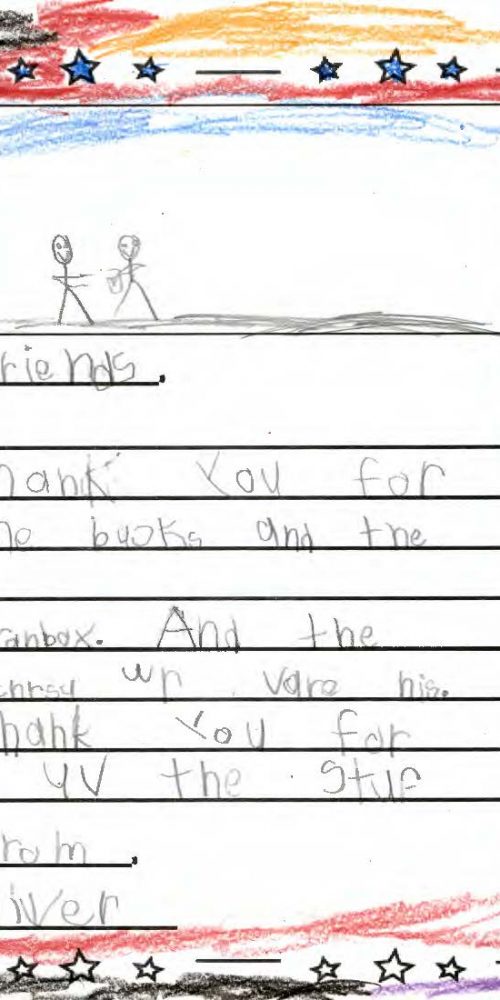 riends.
hank You for
he books and the
anbox. And the
wr vare his.
hank You for
yv the stuf
rom.
iver